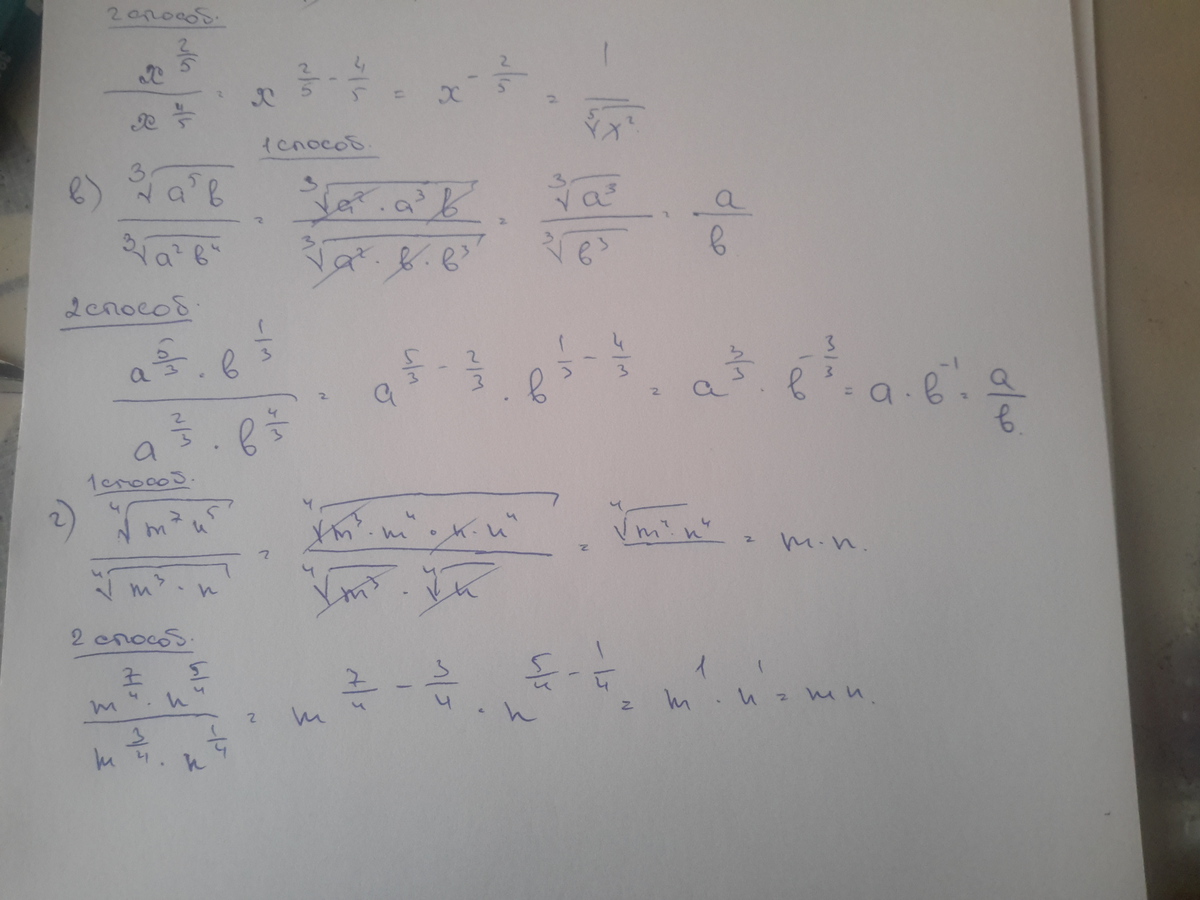 2 способ.
x^(2/5) / x^(4/5) = x^(2/5 - 4/5) = x^(-2/5) = 1 / ⁵√x²
1 способ.
в) ³√(a⁵b) / ³√(a²b⁴) = ³√(a²·a³b) / ³√(a²·b·b³) = ³√a³ / ³√b³ = a/b
2 способ.
a^(5/3)·b^(1/3) / a^(2/3)·b^(4/3) = a^(5/3 - 2/3)·b^(1/3 - 4/3) = a^(3/3)·b^(-3/3) = a·b⁻¹ = a/b.
1 способ.
г) ⁴√(m⁷n⁵) / ⁴√(m³·n) = ⁴√(m³·m⁴·n·n⁴) / ⁴√m³·⁴√n = ⁴√(m⁴·n⁴) = m·n.
2 способ.
m^(7/4)·n^(5/4) / m^(3/4)·n^(1/4) = m^(7/4 - 3/4)·n^(5/4 - 1/4) = m¹·n¹ = mn.